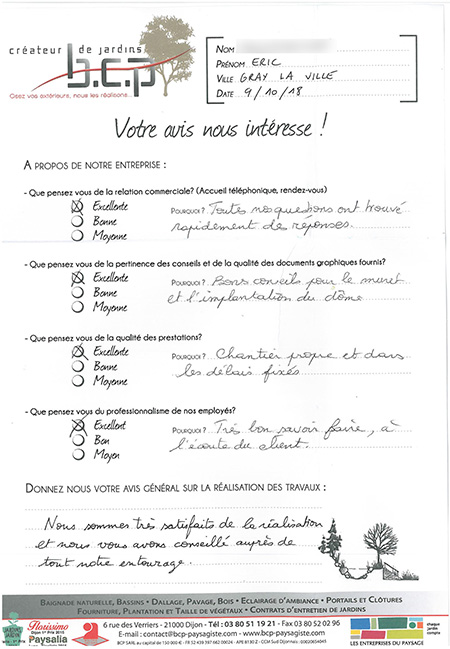 créateur de jardins
b.c.p
Osez vos extérieurs, nous les réalisons...
NOM
PRÉNOM ERIC
VILLE GRAY LA VILLE
DATE 9/10/18
Votre avis nous intéresse !
A PROPOS DE NOTRE ENTREPRISE :
- Que pensez vous de la relation commerciale? (Accueil téléphonique, rendez-vous)
Excellente
Bonne
Moyenne
POURQUOI? Toutes nos questions ont trouvé
rapidement des réponses.
- Que pensez vous de la pertinence des conseils et de la qualité des documents graphiques fournis?
Excellente
Bonne
Moyenne
POURQUOI? Bons conseils pour le muret
et l'implantation du dôme
- Que pensez vous de la qualité des prestations?
Excellente
Bonne
Moyenne
POURQUOI? Chantier propre et dans
les délais fixés
- Que pensez vous du professionnalisme de nos employés?
Excellent
Bon
Moyen
POURQUOI? Très bon savoir faire, à
l'écoute du client.
DONNEZ NOUS VOTRE AVIS GÉNÉRAL SUR LA RÉALISATION DES TRAVAUX :
Nous sommes très satisfaits de la réalisation
et nous vous avons conseillé auprès de
tout notre entourage.
BAIGNADE NATURELLE, BASSINS • DALLAGE, PAVAGE, BOIS • ECLAIRAGE D'AMBIANCE • PORTAILS ET CLÔTURES
FOURNITURE, PLANTATION ET TAILLE DE VÉGÉTAUX • CONTRATS D'ENTRETIEN DE JARDINS
JARDINS JARDIN
Florissimo
Dijon 1er Prix 2015
Paysalia
6 rue des Verriers - 21000 Dijon • Tél : 03 80 51 19 21 - Fax 03 80 52 02 96
E-mail : contact@bcp-paysagiste.com - www.bcp-paysagiste.com
LES ENTREPRISES DU PAYSAGE
chaque
jardin
compte